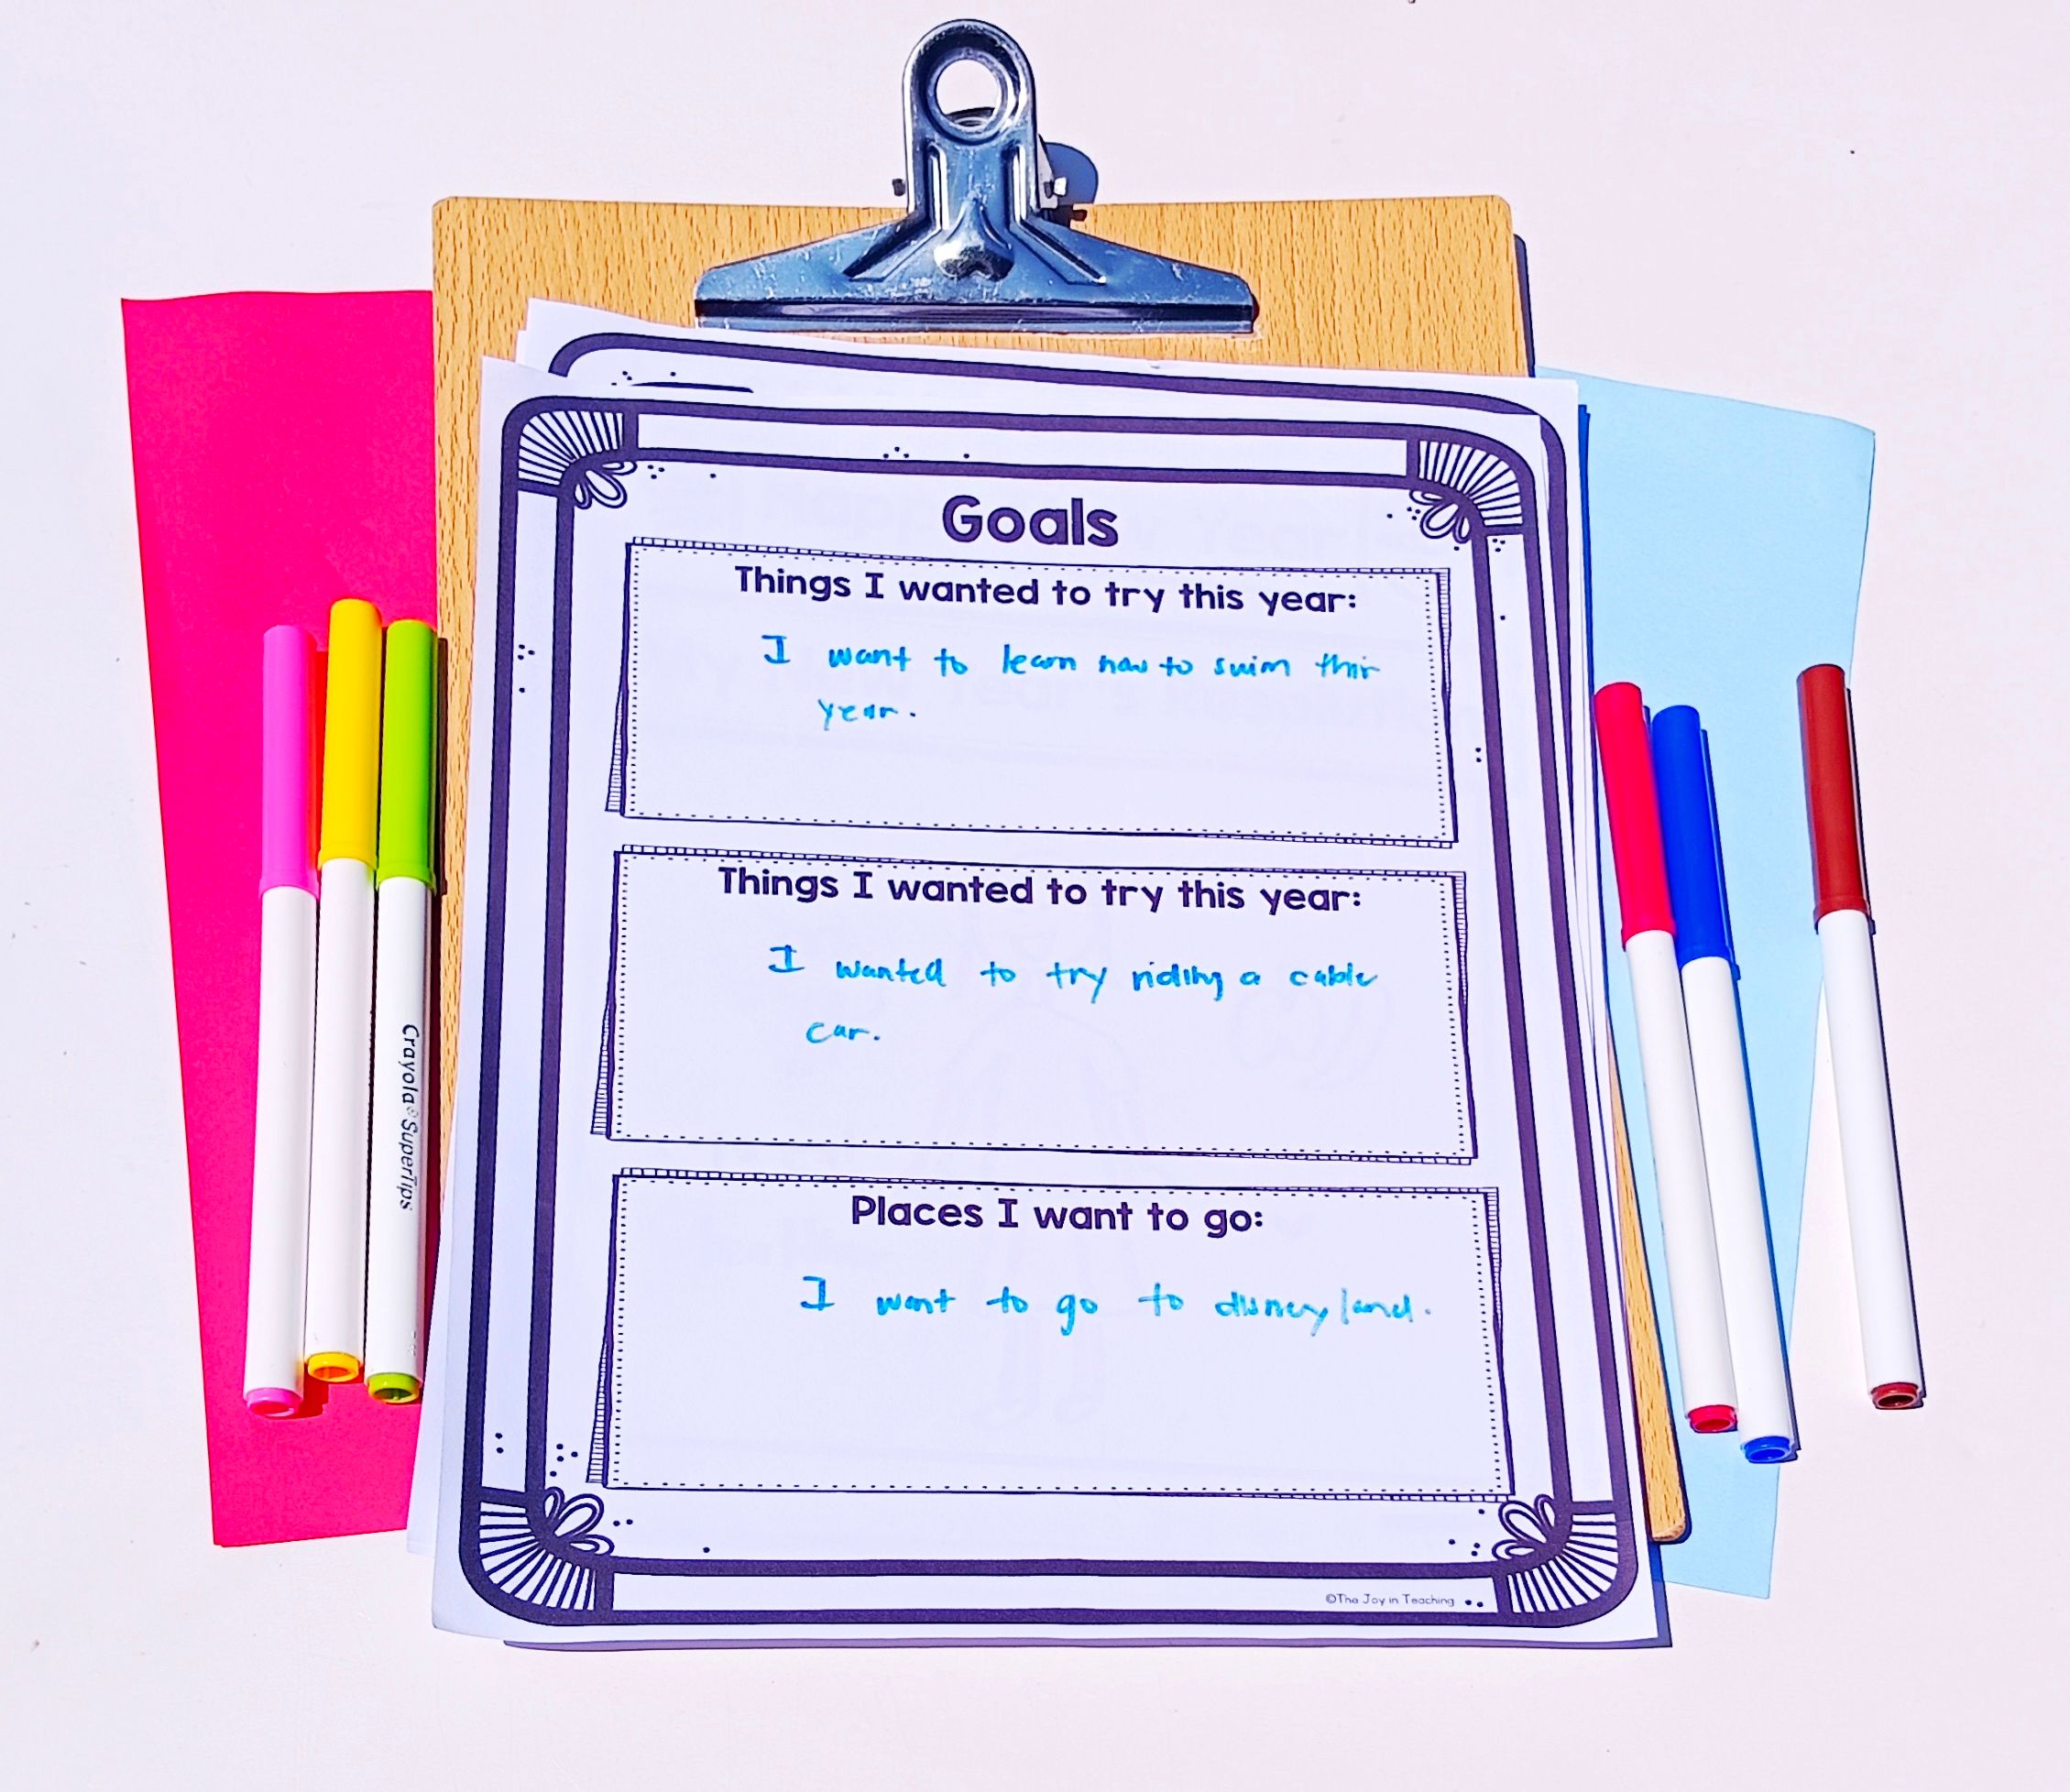 Goals
Things I wanted to try this year:
I want to learn how to swim this
year.
Things I wanted to try this year:
I wanted to try riding a cable
car.
Places I want to go:
I want to go to disneyland.
©The Joy in Teaching
Crayola SuperTips